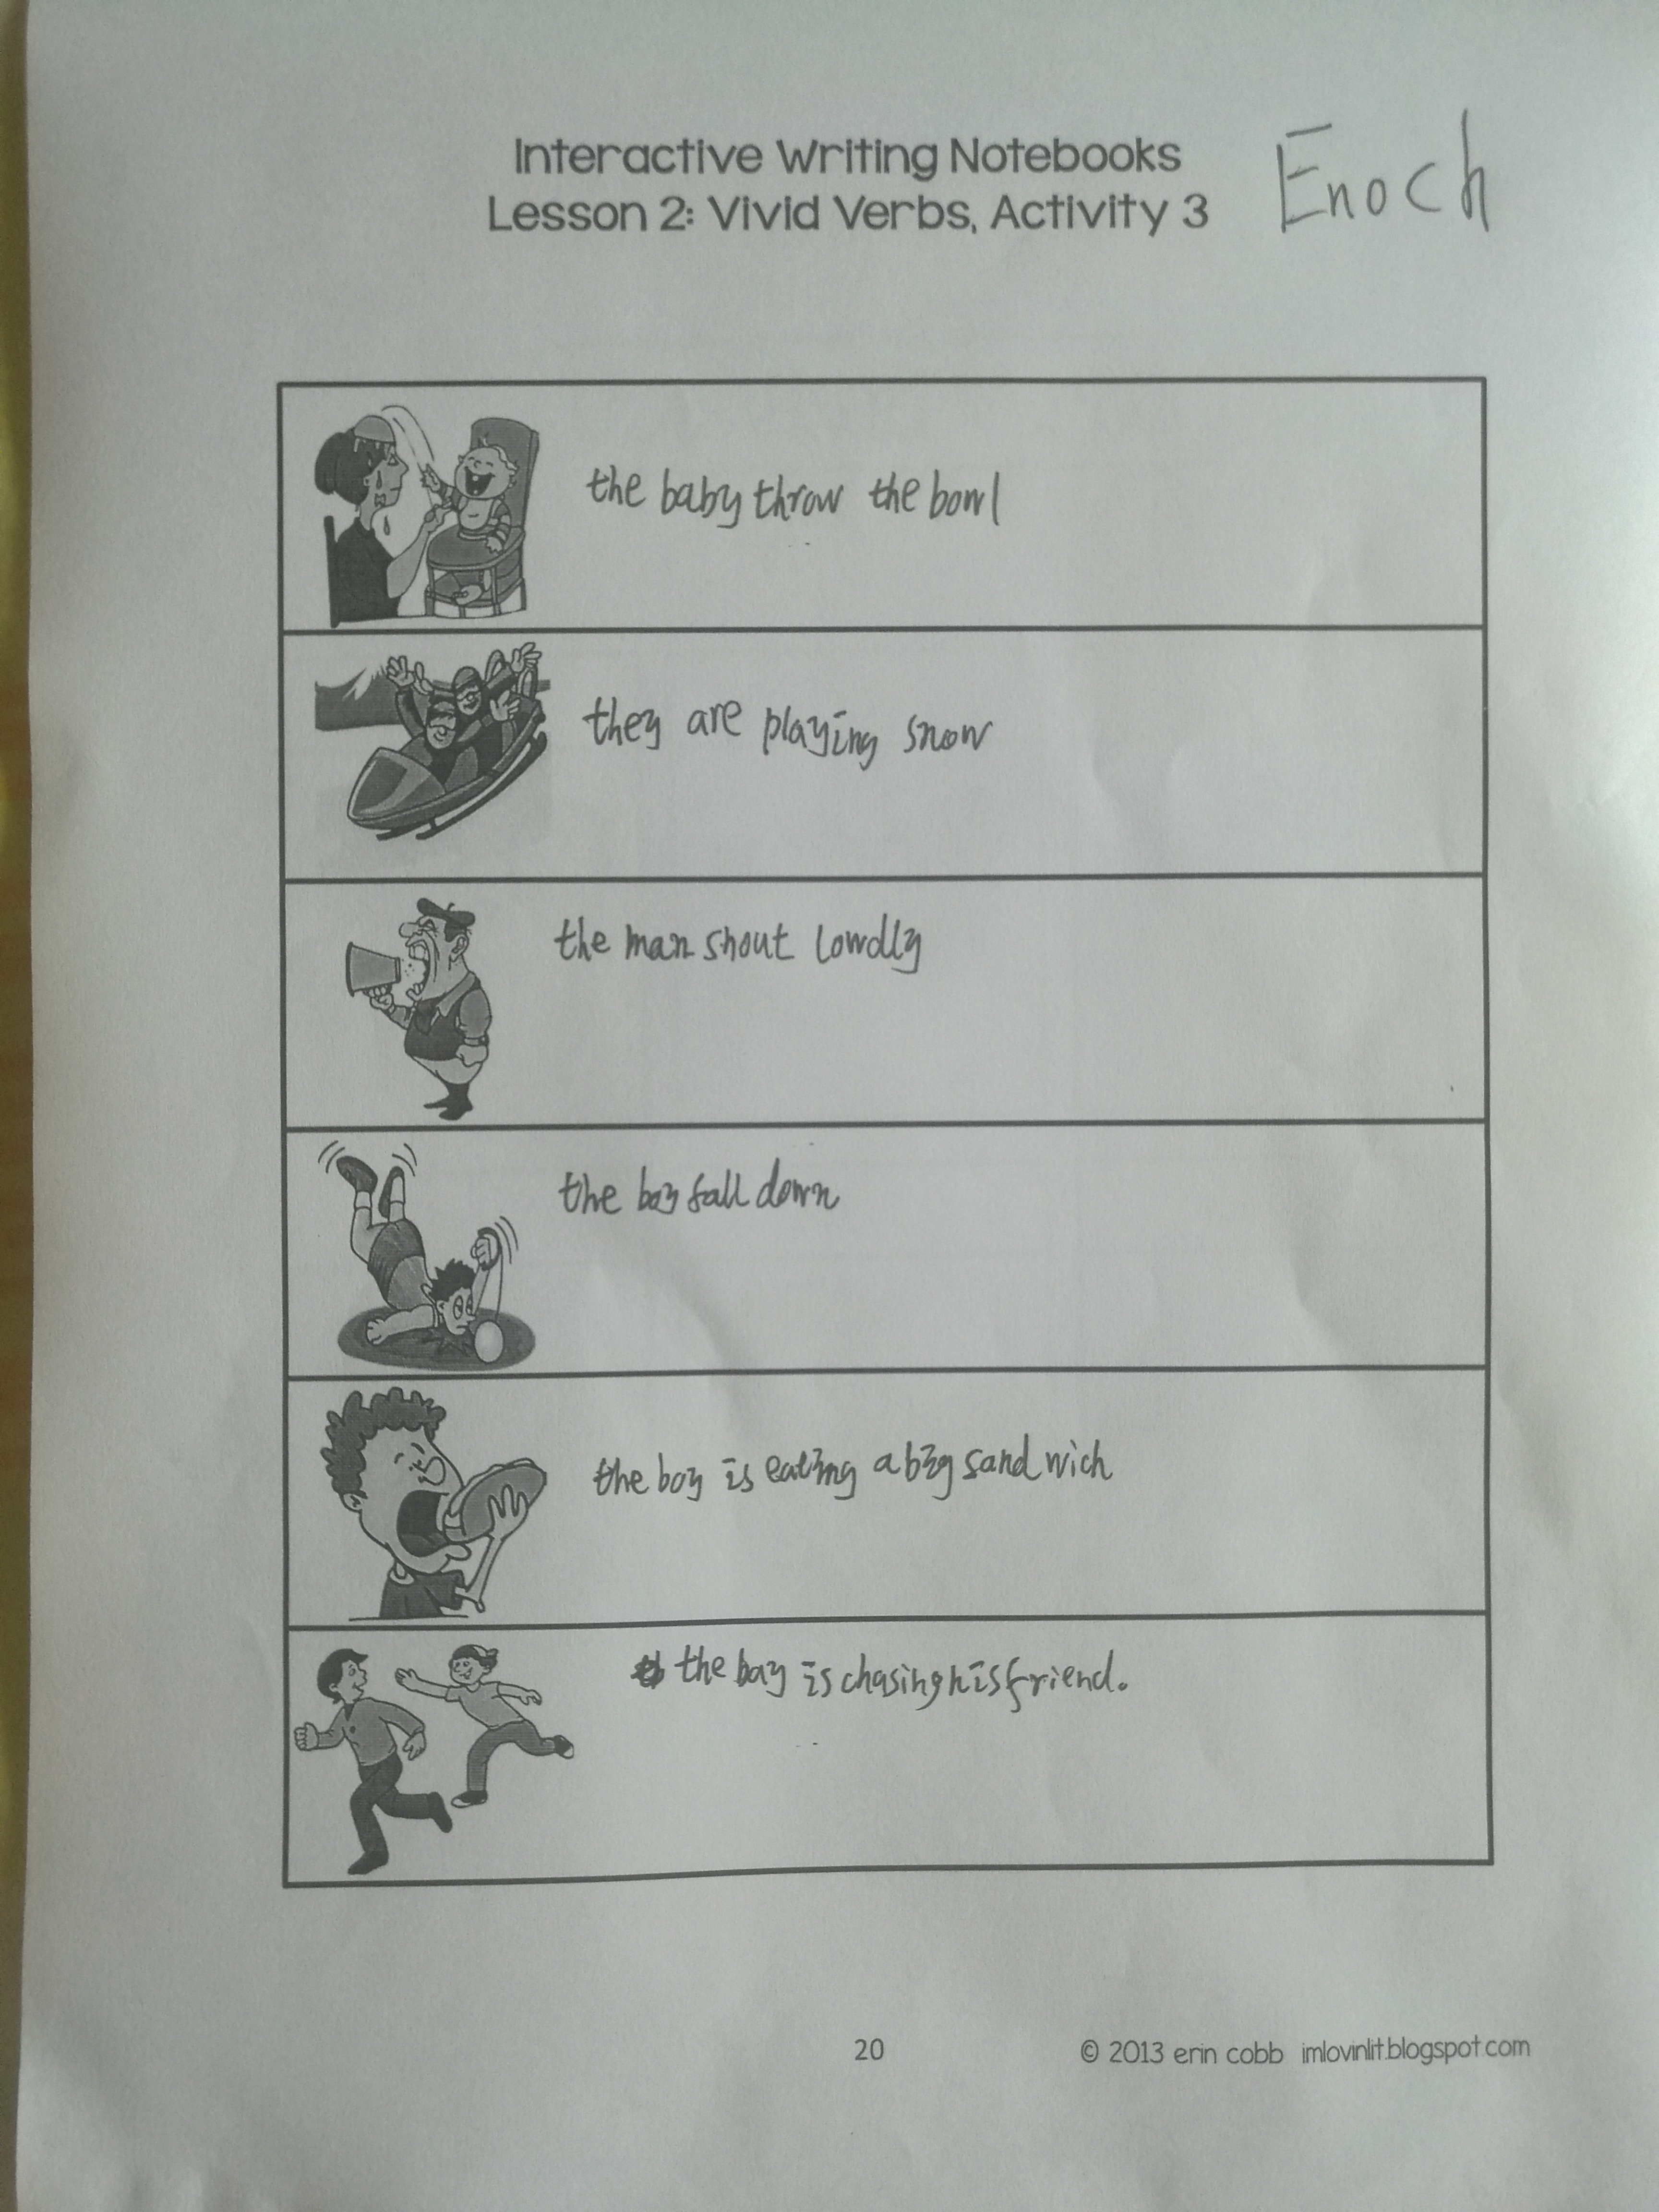 Interactive Writing Notebooks
Lesson 2: Vivid Verbs, Activity 3
Enoch
the baby throw the bowl
they are playing snow
the man shout lowdly
the boy fall down
the boy is eating a big sand wich
the boy is chasing his friend.
20
© 2013 erin cobb imlovinlit.blogspot.com